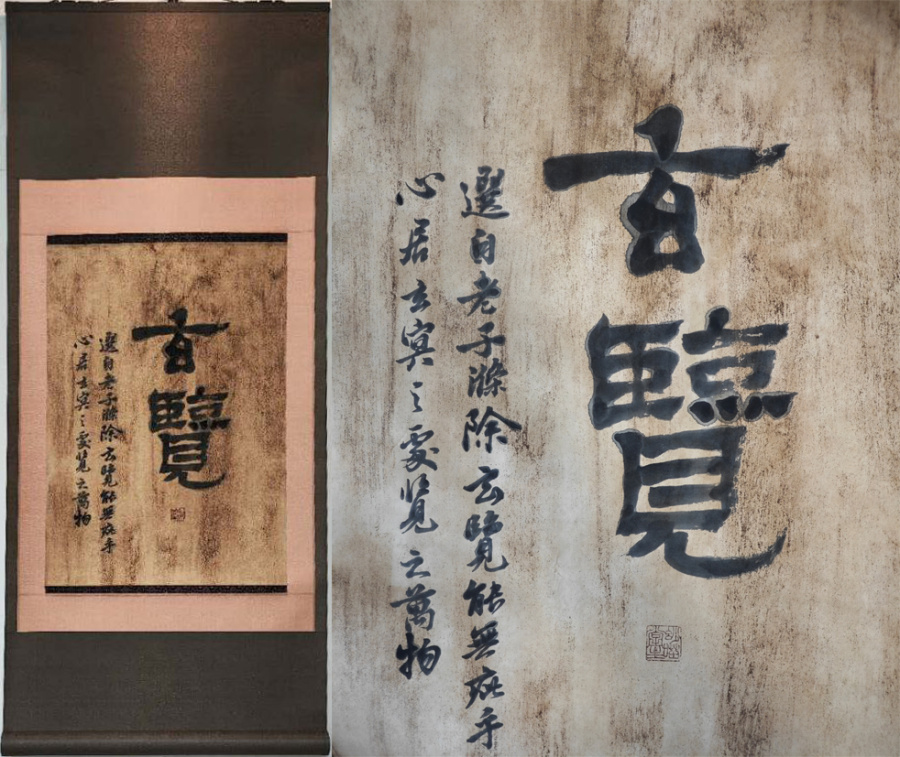 玄覽
選自老子滌除玄覽能無疵乎
心居玄冥之處覽之萬物
玄覽
選自老子滌除玄覽能無疵乎
心居玄冥之處覽之萬物